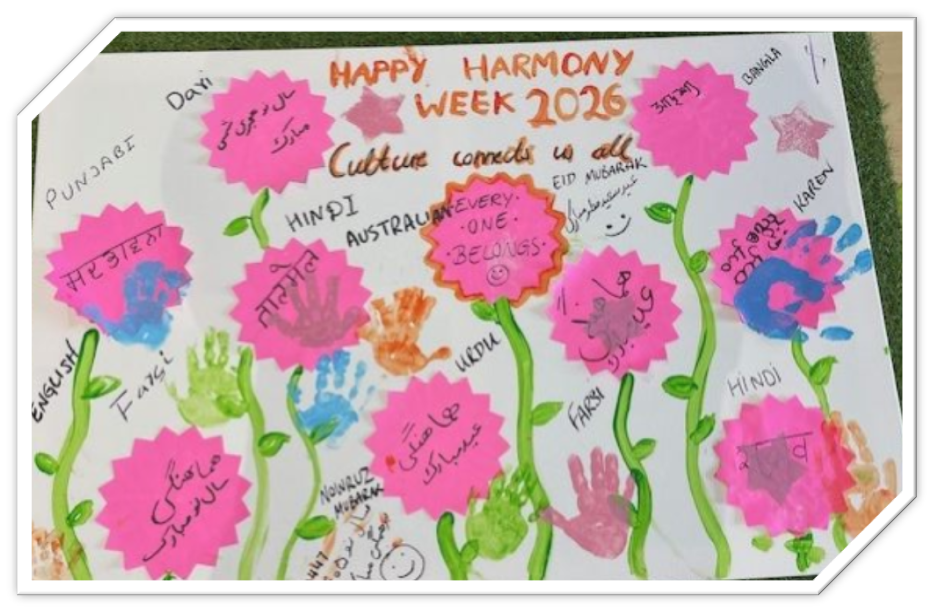 HAPPY HARMONY
WEEK 2026
Culture connects us all
Dari
سال نو هجری شمسی
مبارک
BANGLA
PUNJABI
HINDI
तालमेल
AUSTRALIAN
EVERY
ONE
BELONGS
EID MUBARAK
KAREN
ENGLISH
Farsi
هماهنگی
سال نو مبارک
URDU
هماهنگی
عید مبارک
FARSI
هماهنگی
عید مبارک
HINDI
NOWRUZ
MUBARAK